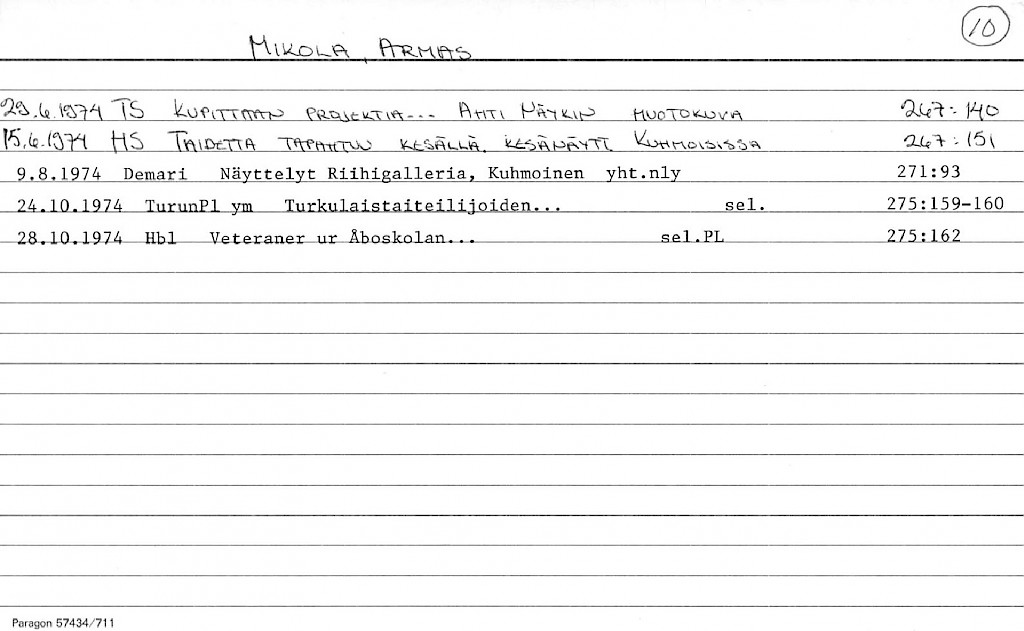 10
MIKOLA, ARMAS
29.6.1974 TS KUPITTAAN PROJEKTIA... AHTI NÄYKIN MUOTOKUVA 267:140
15.6.1974 HS TAIDETTA TAPAHTUU KESÄLLÄ. KESÄNÄYTT. KUHMOISISSA 267:151
9.8.1974 Demari Näyttelyt Riihigalleria, Kuhmoinen yht.nly 271:93
24.10.1974 TurunPl ym Turkulaistaiteilijoiden... sel. 275:159-160
28.10.1974 Hbl Veteraner ur Åboskolan... sel.PL 275:162
Paragon 57434/711